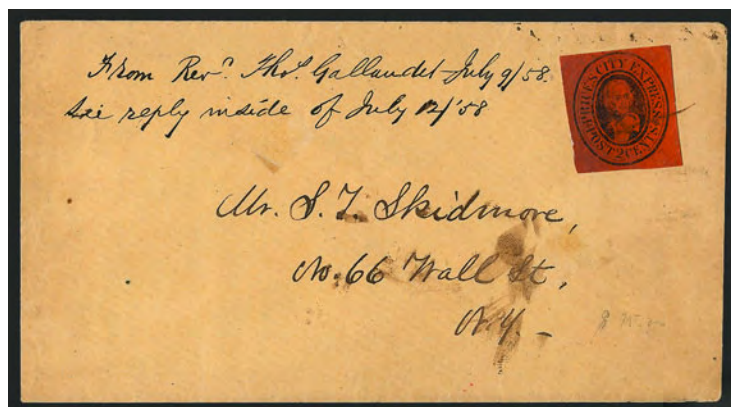 From Revd. Thos. Gallaudet July 9/58.
See reply inside of July 12/58
PRICE'S CITY EXPRESS
POST 2 CENTS
Mr. S. T. Skidmore,
No. 66 Wall St,
N.Y. -